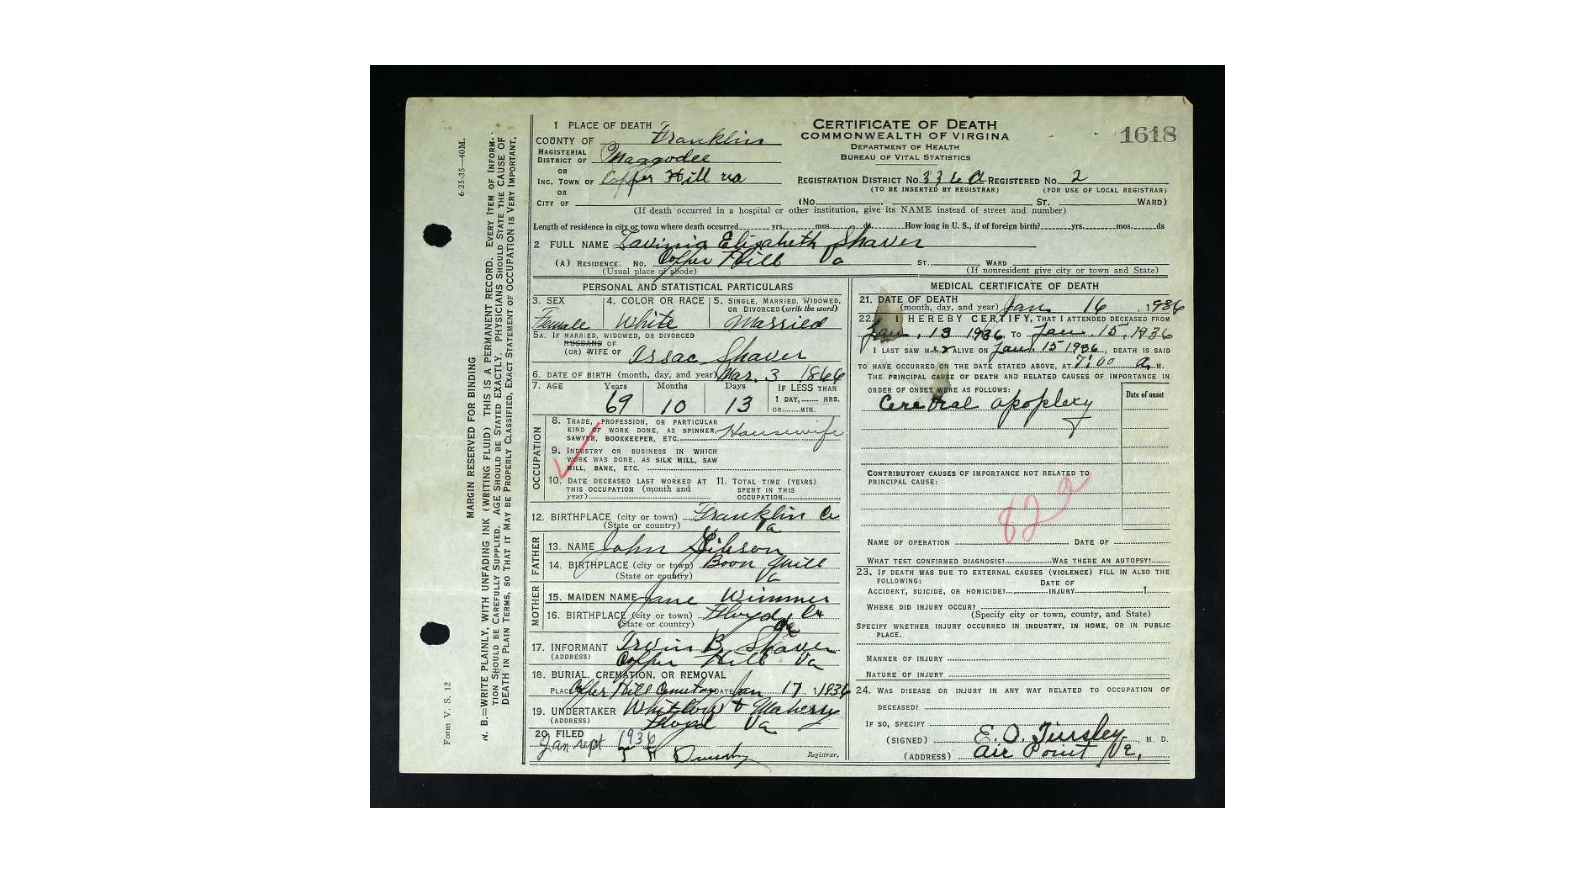 1 PLACE OF DEATH
COUNTY OF Franklin
MAGISTERIAL DISTRICT OF Maggodee
OR
INC. TOWN OF Copper Hill Va
OR
CITY OF
CERTIFICATE OF DEATH
COMMONWEALTH OF VIRGINIA
DEPARTMENT OF HEALTH
BUREAU OF VITAL STATISTICS
1618
REGISTRATION DISTRICT NO. 336A REGISTERED NO. 2
(TO BE INSERTED BY REGISTRAR) (FOR USE OF LOCAL REGISTRAR)
(No. ST. WARD)
(If death occurred in a hospital or other institution, give its NAME instead of street and number)
Length of residence in city or town where death occurred yrs. mos. ds. How long in U. S., if of foreign birth? yrs. mos. ds
2 FULL NAME Lavinia Elizabeth Shaver
(A) RESIDENCE. NO. Copper Hill Va ST. WARD
(Usual place of abode) (If nonresident give city or town and State)
PERSONAL AND STATISTICAL PARTICULARS
3. SEX 4. COLOR OR RACE 5. SINGLE, MARRIED, WIDOWED, OR DIVORCED (write the word)
Female White Married
5A. IF MARRIED, WIDOWED, OR DIVORCED
HUSBAND OF
(OR) WIFE OF Issac Shaver
6. DATE OF BIRTH (month, day, and year) Mar. 3 1866
7. AGE Years Months Days IF LESS THAN
69 10 13 1 DAY, HRS.
OR MIN.
OCCUPATION
8. TRADE, PROFESSION, OR PARTICULAR
KIND OF WORK DONE, AS SPINNER,
SAWYER, BOOKKEEPER, ETC. Housewife
9. INDUSTRY OR BUSINESS IN WHICH
WORK WAS DONE, AS SILK MILL, SAW
MILL, BANK, ETC.
10. DATE DECEASED LAST WORKED AT 11. TOTAL TIME (YEARS)
THIS OCCUPATION (month and SPENT IN THIS
year) OCCUPATION
12. BIRTHPLACE (city or town) Franklin Co
(State or country) Va
FATHER
13. NAME John Gibson
14. BIRTHPLACE (city or town) Boon Mill
(State or country) Va
MOTHER
15. MAIDEN NAME Jane Wimmer
16. BIRTHPLACE (city or town) Floyd Co
(State or country) Va
17. INFORMANT Irvin B. Shaver
(ADDRESS) Copper Hill Va
18. BURIAL, CREMATION, OR REMOVAL
PLACE Copper Hill Cemetery DATE Jan 17, 1936
19. UNDERTAKER Whitlow & Maberry
(ADDRESS) Floyd Va
20. FILED
Jan rept 1936
Registrar.
MEDICAL CERTIFICATE OF DEATH
21. DATE OF DEATH
(month, day, and year) Jan 16, 1936
22. I HEREBY CERTIFY, THAT I ATTENDED DECEASED FROM
Jan. 13 1936 TO Jan. 15, 1936
I LAST SAW HER ALIVE ON Jan. 15 1936, DEATH IS SAID
TO HAVE OCCURRED ON THE DATE STATED ABOVE, AT 7:00 A. M.
THE PRINCIPAL CAUSE OF DEATH AND RELATED CAUSES OF IMPORTANCE IN
ORDER OF ONSET WERE AS FOLLOWS: Date of onset
Cerebral apoplexy
CONTRIBUTORY CAUSES OF IMPORTANCE NOT RELATED TO
PRINCIPAL CAUSE:
82a
NAME OF OPERATION DATE OF
WHAT TEST CONFIRMED DIAGNOSIS? WAS THERE AN AUTOPSY?
23. IF DEATH WAS DUE TO EXTERNAL CAUSES (VIOLENCE) FILL IN ALSO THE
FOLLOWING: DATE OF
ACCIDENT, SUICIDE, OR HOMICIDE? INJURY 1
WHERE DID INJURY OCCUR?
(Specify city or town, county, and State)
SPECIFY WHETHER INJURY OCCURRED IN INDUSTRY, IN HOME, OR IN PUBLIC
PLACE.
MANNER OF INJURY
NATURE OF INJURY
24. WAS DISEASE OR INJURY IN ANY WAY RELATED TO OCCUPATION OF
DECEASED?
IF SO, SPECIFY
(SIGNED) E. O. Tinsley, M. D.
(ADDRESS) Air Point Va,
6-25-35—40M.
MARGIN RESERVED FOR BINDING
N. B.—WRITE PLAINLY, WITH UNFADING INK (WRITING FLUID) THIS IS A PERMANENT RECORD. EVERY ITEM OF INFORM-
TION SHOULD BE CAREFULLY SUPPLIED. AGE SHOULD BE STATED EXACTLY. PHYSICIANS SHOULD STATE THE CAUSE OF
DEATH IN PLAIN TERMS, SO THAT IT MAY BE PROPERLY CLASSIFIED, EXACT STATEMENT OF OCCUPATION IS VERY IMPORTANT.
Form V. S. 12